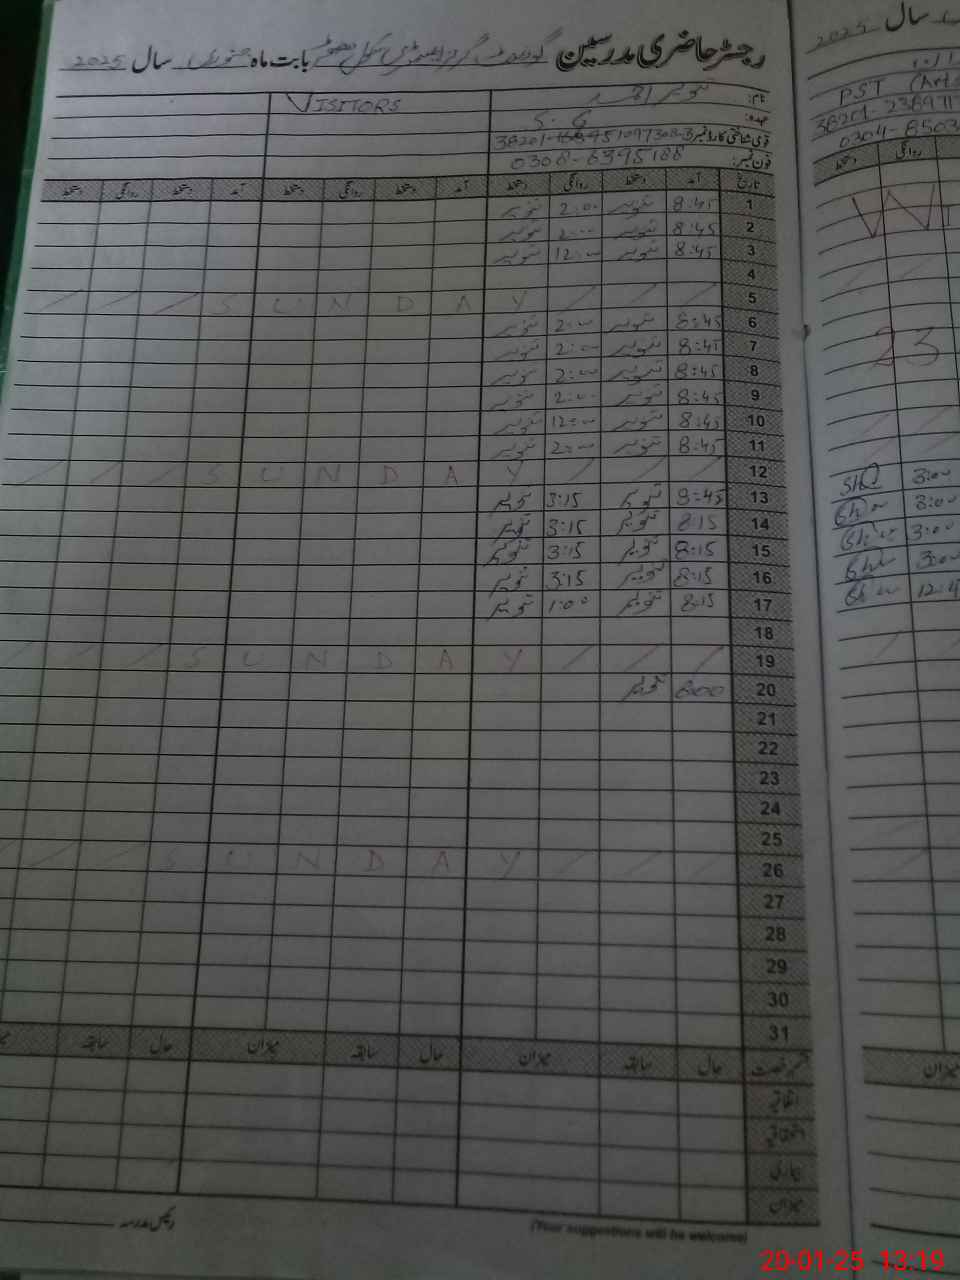 رجسٹر حاضری مدرسین گورنمنٹ گرلز ایلیمنٹری سکول بابت ماہ جنوری سال 2025
نام: تنویر VISITORS
عہدہ:
قومی شناختی کارڈ نمبر
فون نمبر: 0308-6395188
تاریخ آمد دستخط روانگی دستخط آمد دستخط روانگی دستخط آمد دستخط روانگی دستخط
1 8:45 تنویر 2:00 تنویر
2 8:45 تنویر 2:00 تنویر
3 8:45 تنویر 12:00 تنویر
4
5 SUNDAY
6 8:45 تنویر 2:00 تنویر
7 8:45 تنویر 2:00 تنویر
8 8:45 تنویر 2:00 تنویر
9 8:45 تنویر 2:00 تنویر
10 8:45 تنویر 12:00 تنویر
11 8:45 تنویر 2:00 تنویر
12 SUNDAY
13 8:45 تنویر 3:15 تنویر
14 8:15 تنویر 3:15 تنویر
15 8:15 تنویر 3:15 تنویر
16 8:15 تنویر 3:15 تنویر
17 8:15 تنویر 1:00 تنویر
18
19 SUNDAY
20 8:00 تنویر
21
22
23
24
25
26 SUNDAY
27
28
29
30
31
قسم رخصت حال سابقہ میزان حال سابقہ میزان حال سابقہ
اتفاقیہ
استحقاقیہ
بیماری
میزان
(Your suggestions will be welcome)
رئیس مدرسہ
سال 2025
PST (Arts
0304-8503
دستخط روانگی
23
3:00
3:00
3:00
3:00
میزان
20-01-25 13:19